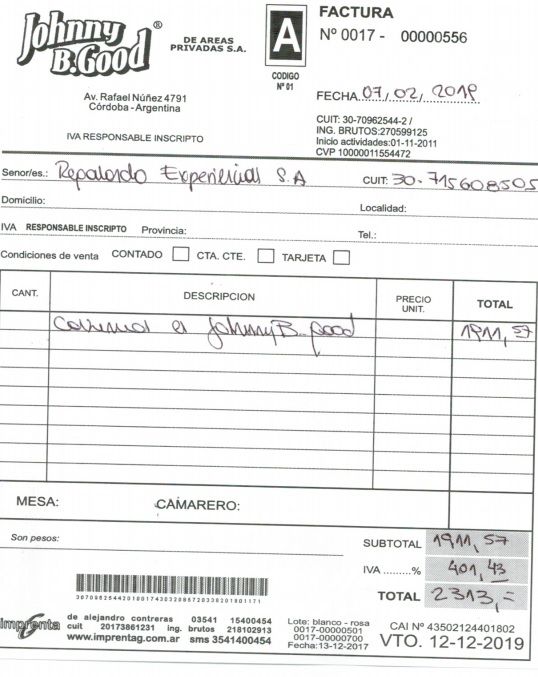 Johnny B.Good ®
DE AREAS PRIVADAS S.A.
A
CODIGO
Nº 01
FACTURA
Nº 0017 - 00000556
FECHA 07/02/2018
Av. Rafael Núñez 4791
Córdoba - Argentina
IVA RESPONSABLE INSCRIPTO
CUIT: 30-70962544-2 /
ING. BRUTOS:270599125
Inicio actividades:01-11-2011
CVP 10000011554472
Senor/es.: Regalando Experiencias S.A CUIT: 30-715608505
Domicilio: Localidad:
IVA RESPONSABLE INSCRIPTO Provincia: Tel.:
Condiciones de venta CONTADO CTA. CTE. TARJETA
CANT. DESCRIPCION PRECIO UNIT. TOTAL
Johnny B. Good 1911,57
MESA: CAMARERO:
Son pesos:
SUBTOTAL 1911,57
IVA .........% 401,43
TOTAL 2313,=
imprenta
de alejandro contreras 03541 15400454
cuit 20173861231 ing. brutos 218102913
www.imprentag.com.ar sms 3541400454
Lote: blanco - rosa
0017-00000501
0017-00000700
Fecha:13-12-2017
CAI Nº 43502124401802
VTO. 12-12-2019